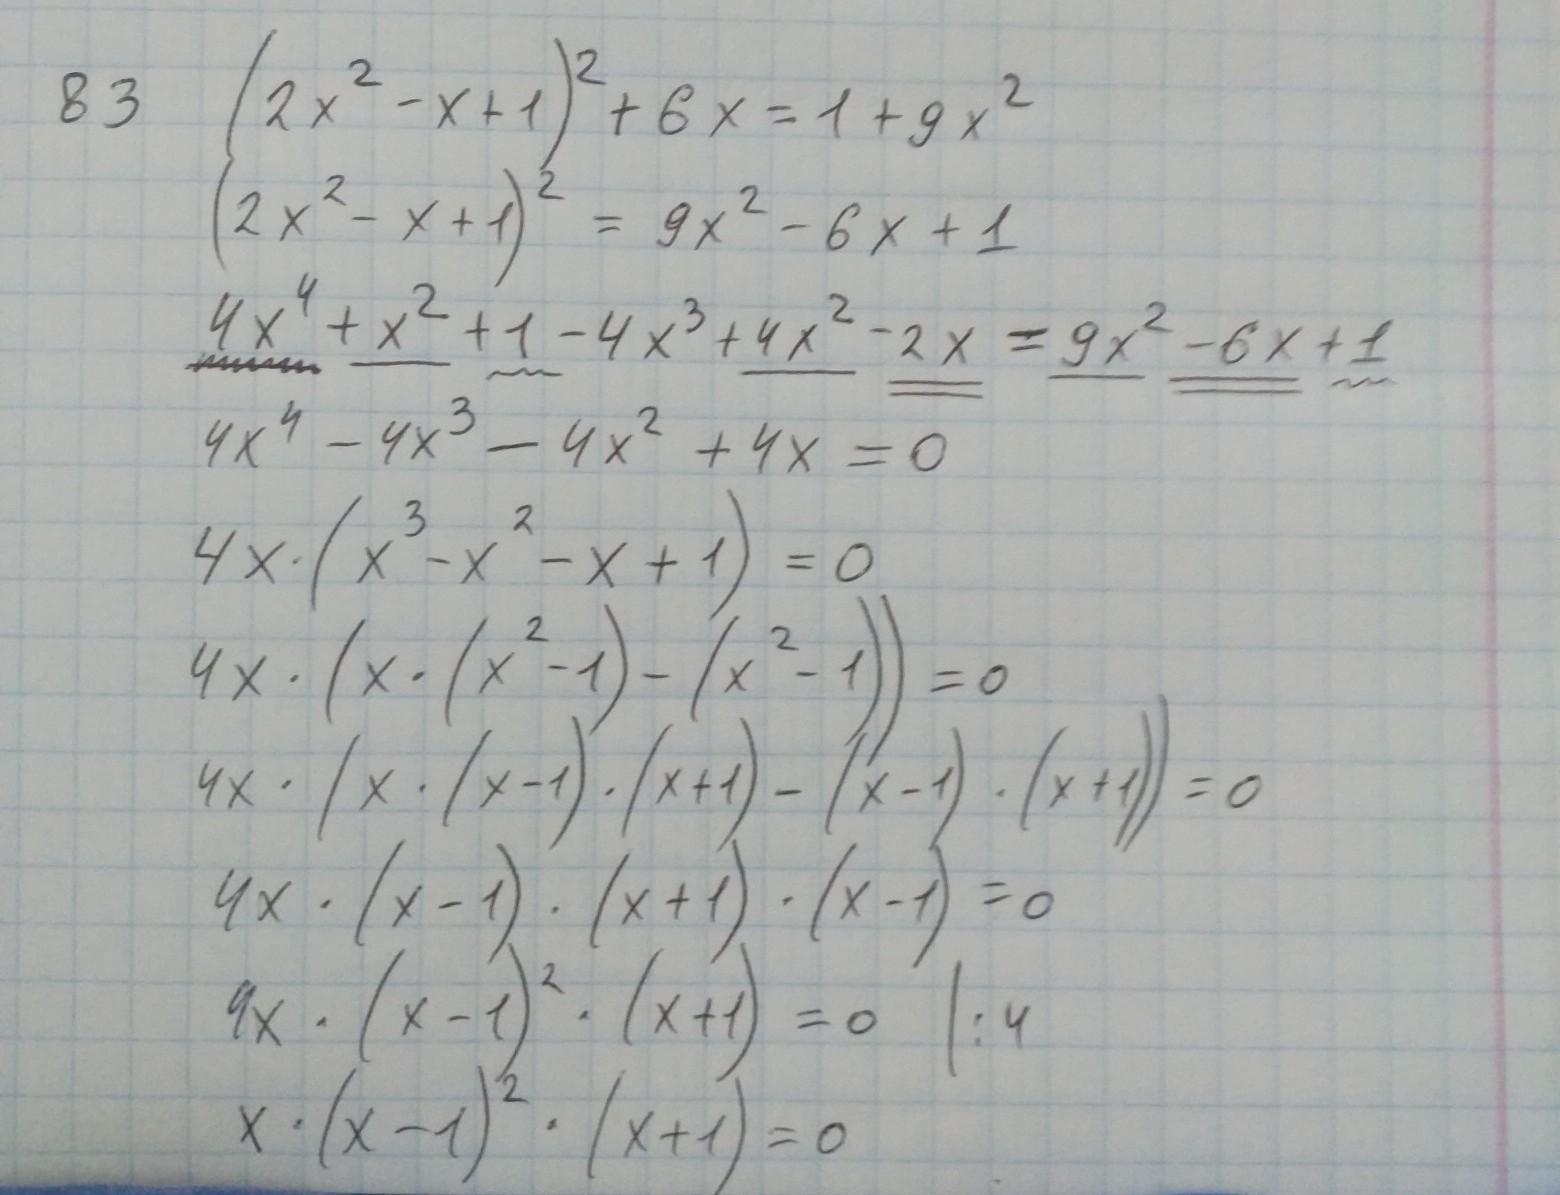 83 (2x² - x + 1)² + 6x = 1 + 9x²
(2x² - x + 1)² = 9x² - 6x + 1
4x⁴ + x² + 1 - 4x³ + 4x² - 2x = 9x² - 6x + 1
4x⁴ - 4x³ - 4x² + 4x = 0
4x · (x³ - x² - x + 1) = 0
4x · (x · (x² - 1) - (x² - 1)) = 0
4x · (x · (x - 1) · (x + 1) - (x - 1) · (x + 1)) = 0
4x · (x - 1) · (x + 1) · (x - 1) = 0
4x · (x - 1)² · (x + 1) = 0 | : 4
x · (x - 1)² · (x + 1) = 0